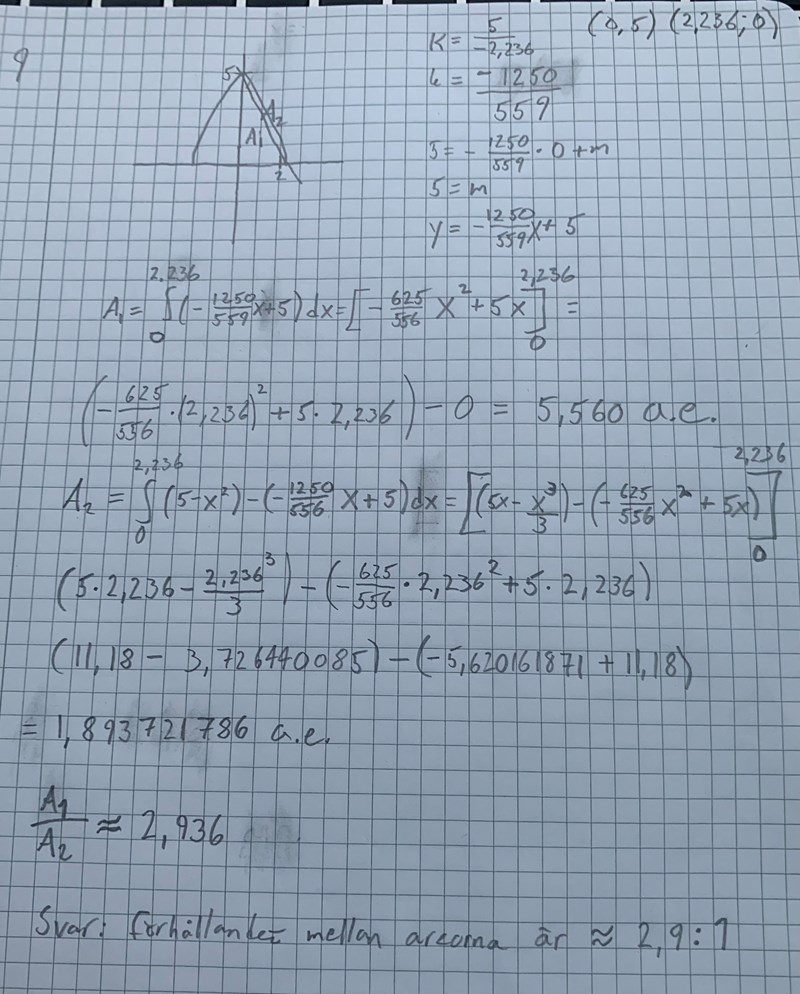 9
5
A₂
A₁
2
(0,5) (2,236;0)
K = 5/-2,236
k = -1250/559
5 = -1250/559 · 0 + m
5 = m
y = -1250/559 x + 5
A₁ = ∫₀^2,236 (-1250/559 x + 5) dx = [-625/556 x² + 5x]₀^2,236 =
(-625/556 · (2,236)² + 5 · 2,236) - 0 = 5,560 a.e.
A₂ = ∫₀^2,236 (5-x²) - (-1250/556 x + 5) dx = [(5x - x³/3) - (-625/556 x² + 5x)]₀^2,236
(5 · 2,236 - 2,236³/3) - (-625/556 · 2,236² + 5 · 2,236)
(11,18 - 3,726440085) - (-5,620161871 + 11,18)
= 1,893721786 a.e.
A₁/A₂ ≈ 2,936
Svar: förhållandet mellan areorna är ≈ 2,9:1